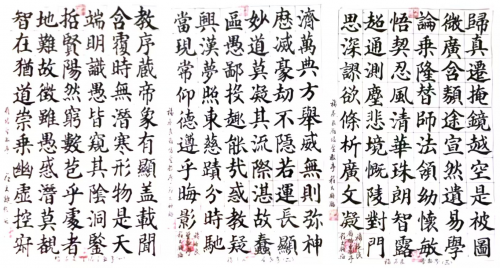 教序蔵帝象有顯盖載聞
含覆時無潛寒形物是天
端明識愚皆窺其陰洞鑒
哲賢陽然窮數苞乎處者
地難故徴雖愚惑潛莫覩
智在猶道崇乘幽虛控寂
濟萬典方舉威無則弥神
應滅豪劫不隱若運長顯
妙道莫凝其流際湛故蠢
區愚鄙投趣能哉惑教疑
興漢夢照東慈兆分時馳
當現常仰德遵乎晦影
歸真遷掩乘越是被圖
微廣含類途宣然遺易
論乘隆替師法領幼懷敏學
悟契忍風清華珠朗智露
超通測塵悲境慨陵對門
思深謬欲條析廣文凝